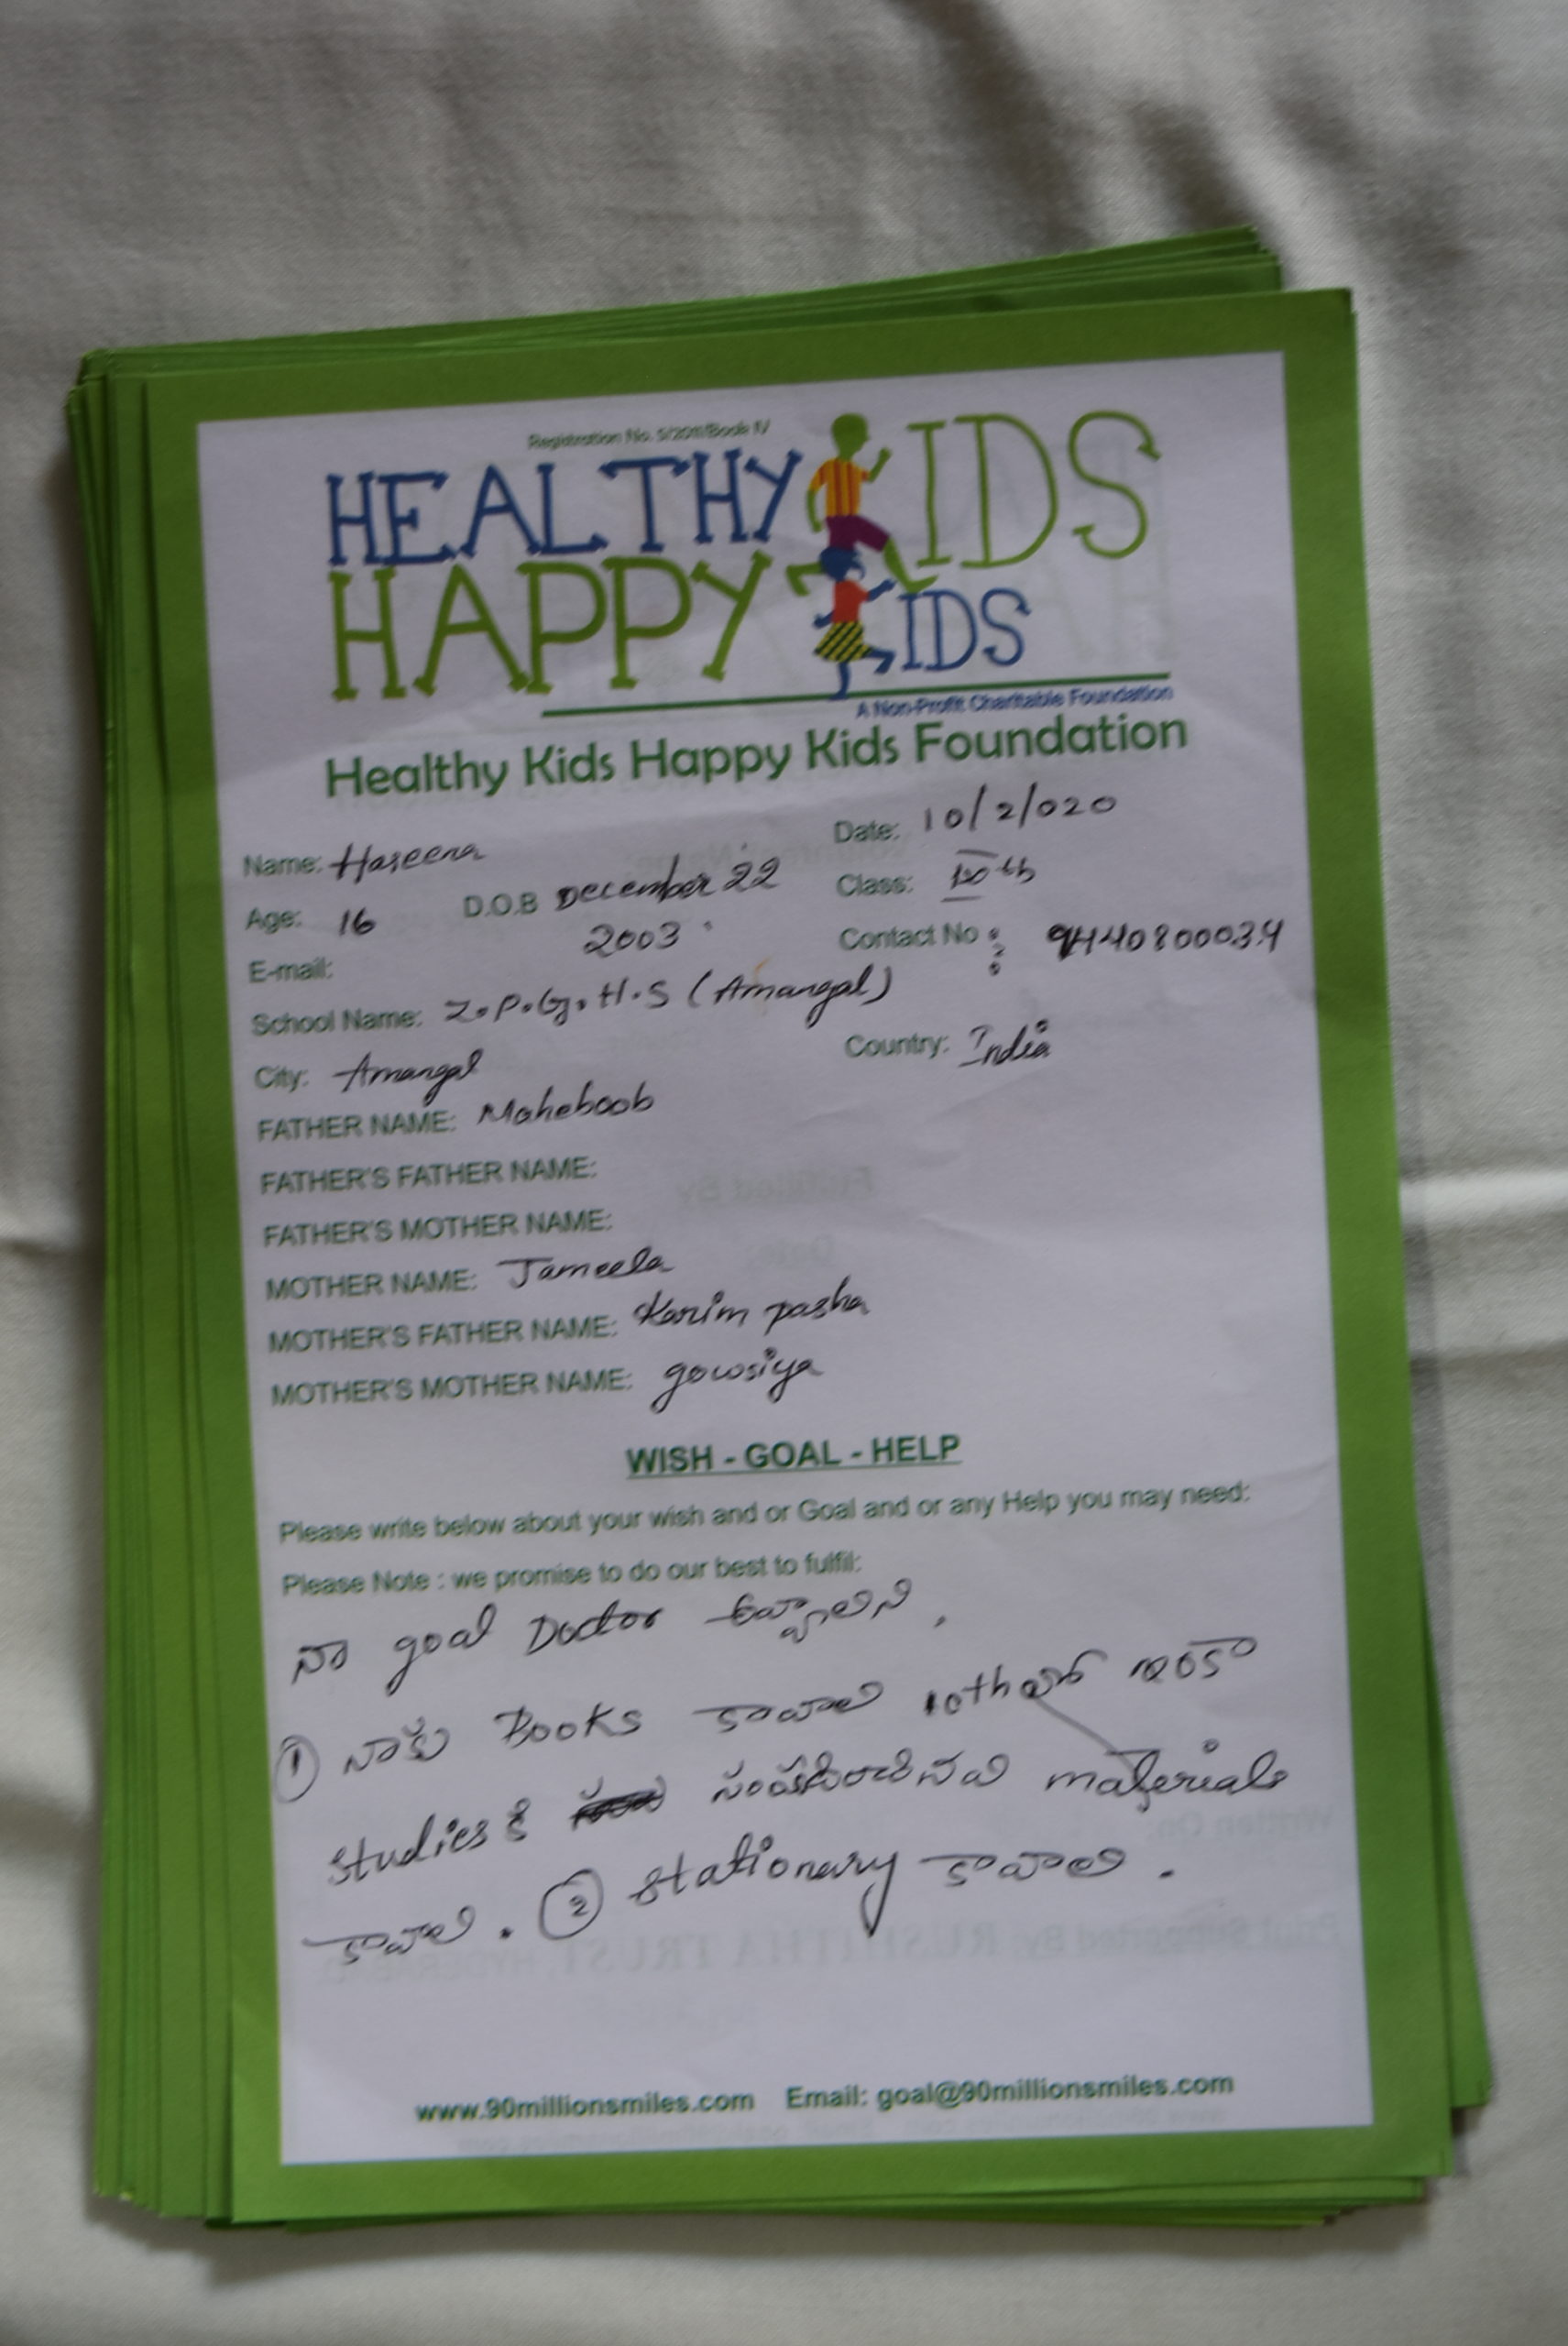 Registration No. 5/2011/Book IV
HEALTHY KIDS
HAPPY KIDS
A Non-Profit Charitable Foundation
Healthy Kids Happy Kids Foundation
Name: Haseena Date: 10/2/020
Age: 16 D.O.B December 22 2003 Class: 10th
E-mail: Contact No : 9440800034
School Name: Z.P.G.H.S (Amangal)
City: Amangal Country: India
FATHER NAME: Maheboob
FATHER'S FATHER NAME:
FATHER'S MOTHER NAME:
MOTHER NAME: Jameela
MOTHER'S FATHER NAME: Karim pasha
MOTHER'S MOTHER NAME: gowsiya
WISH - GOAL - HELP
Please write below about your wish and or Goal and or any Help you may need:
Please Note : we promise to do our best to fulfil:
నా goal Doctor అవ్వాలని .
① నాకు Books కావాలి 10th ఇంకా
studies కి సంబంధించినవి materials
కావాలి . ② stationary కావాలి .
www.90millionsmiles.com Email: goal@90millionsmiles.com